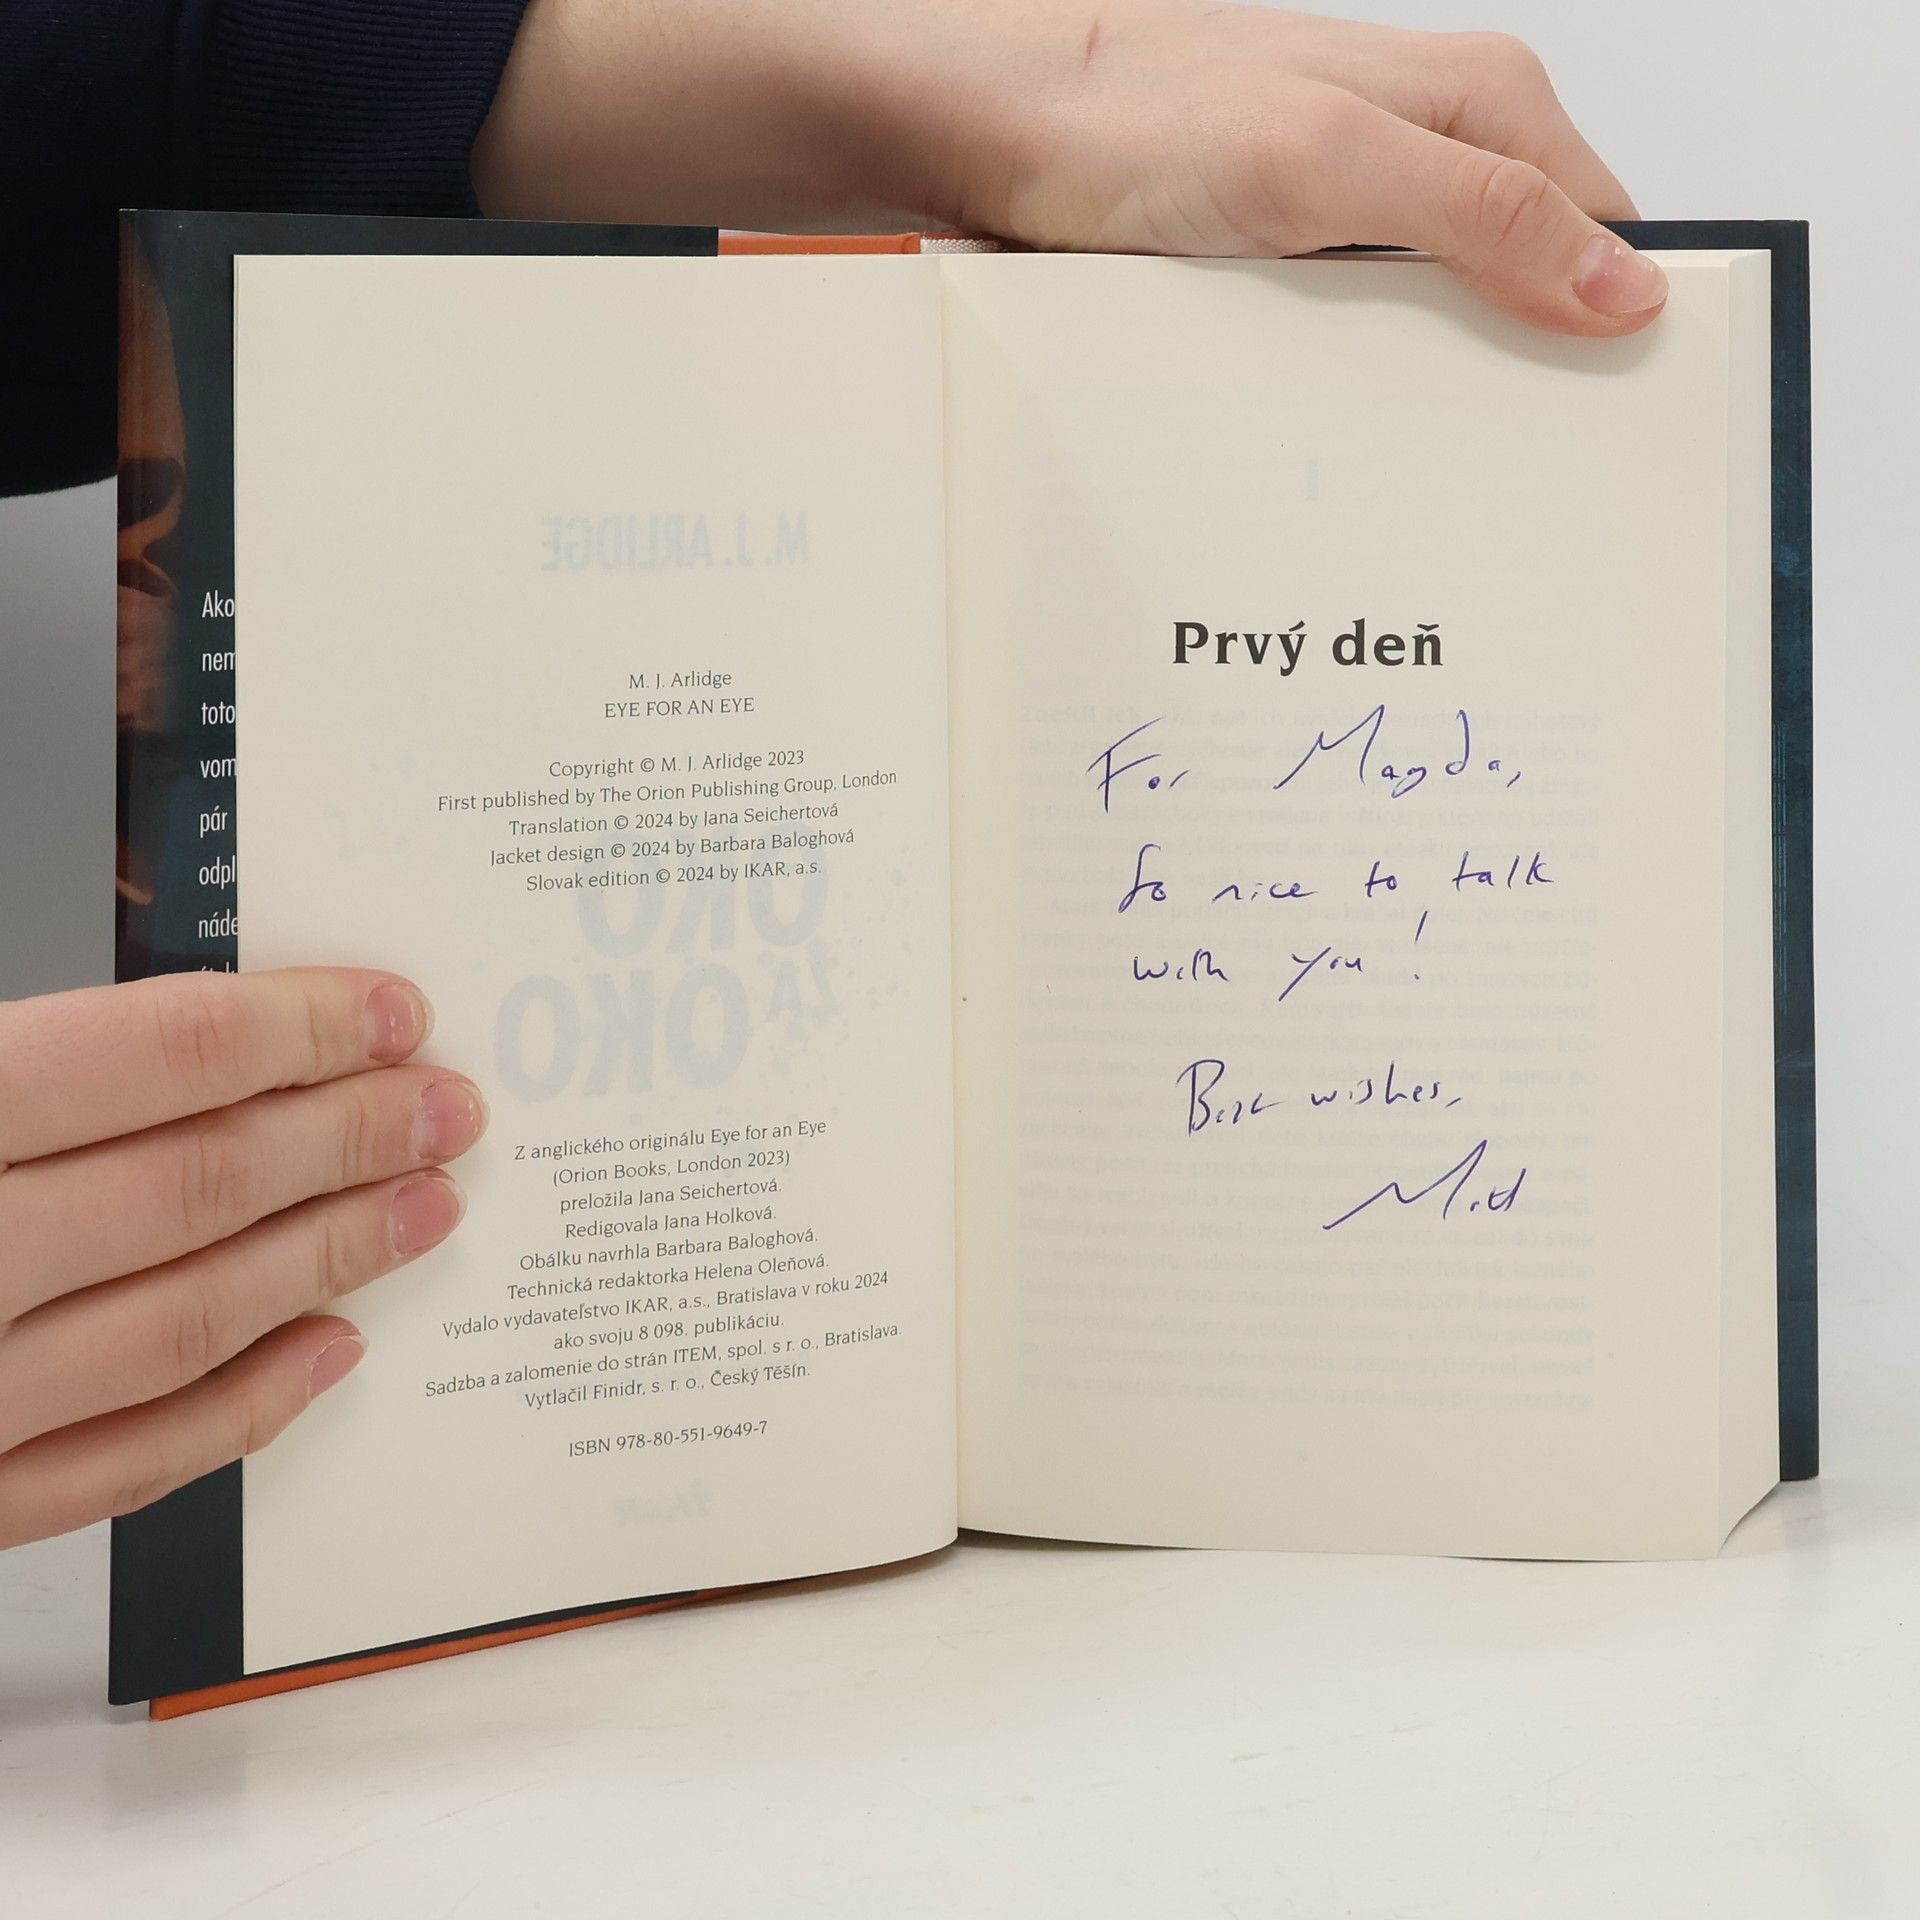 Ako
nem
toto
vom
pár
odpl
náde
M. J. ARLIDGE
OKO
ZA OKO
M. J. Arlidge
EYE FOR AN EYE
Copyright © M. J. Arlidge 2023
First published by The Orion Publishing Group, London
Translation © 2024 by Jana Seichertová
Jacket design © 2024 by Barbara Baloghová
Slovak edition © 2024 by IKAR, a.s.
Z anglického originálu Eye for an Eye
(Orion Books, London 2023)
preložila Jana Seichertová.
Redigovala Jana Holková.
Obálku navrhla Barbara Baloghová.
Technická redaktorka Helena Oleňová.
Vydalo vydavateľstvo IKAR, a.s., Bratislava v roku 2024
ako svoju 8 098. publikáciu.
Sadzba a zalomenie do strán ITEM, spol. s r. o., Bratislava.
Vytlačil Finidr, s. r. o., Český Těšín.
ISBN 978-80-551-9649-7
1
Prvý deň
For Magda,
So nice to talk
with you!
Best wishes,